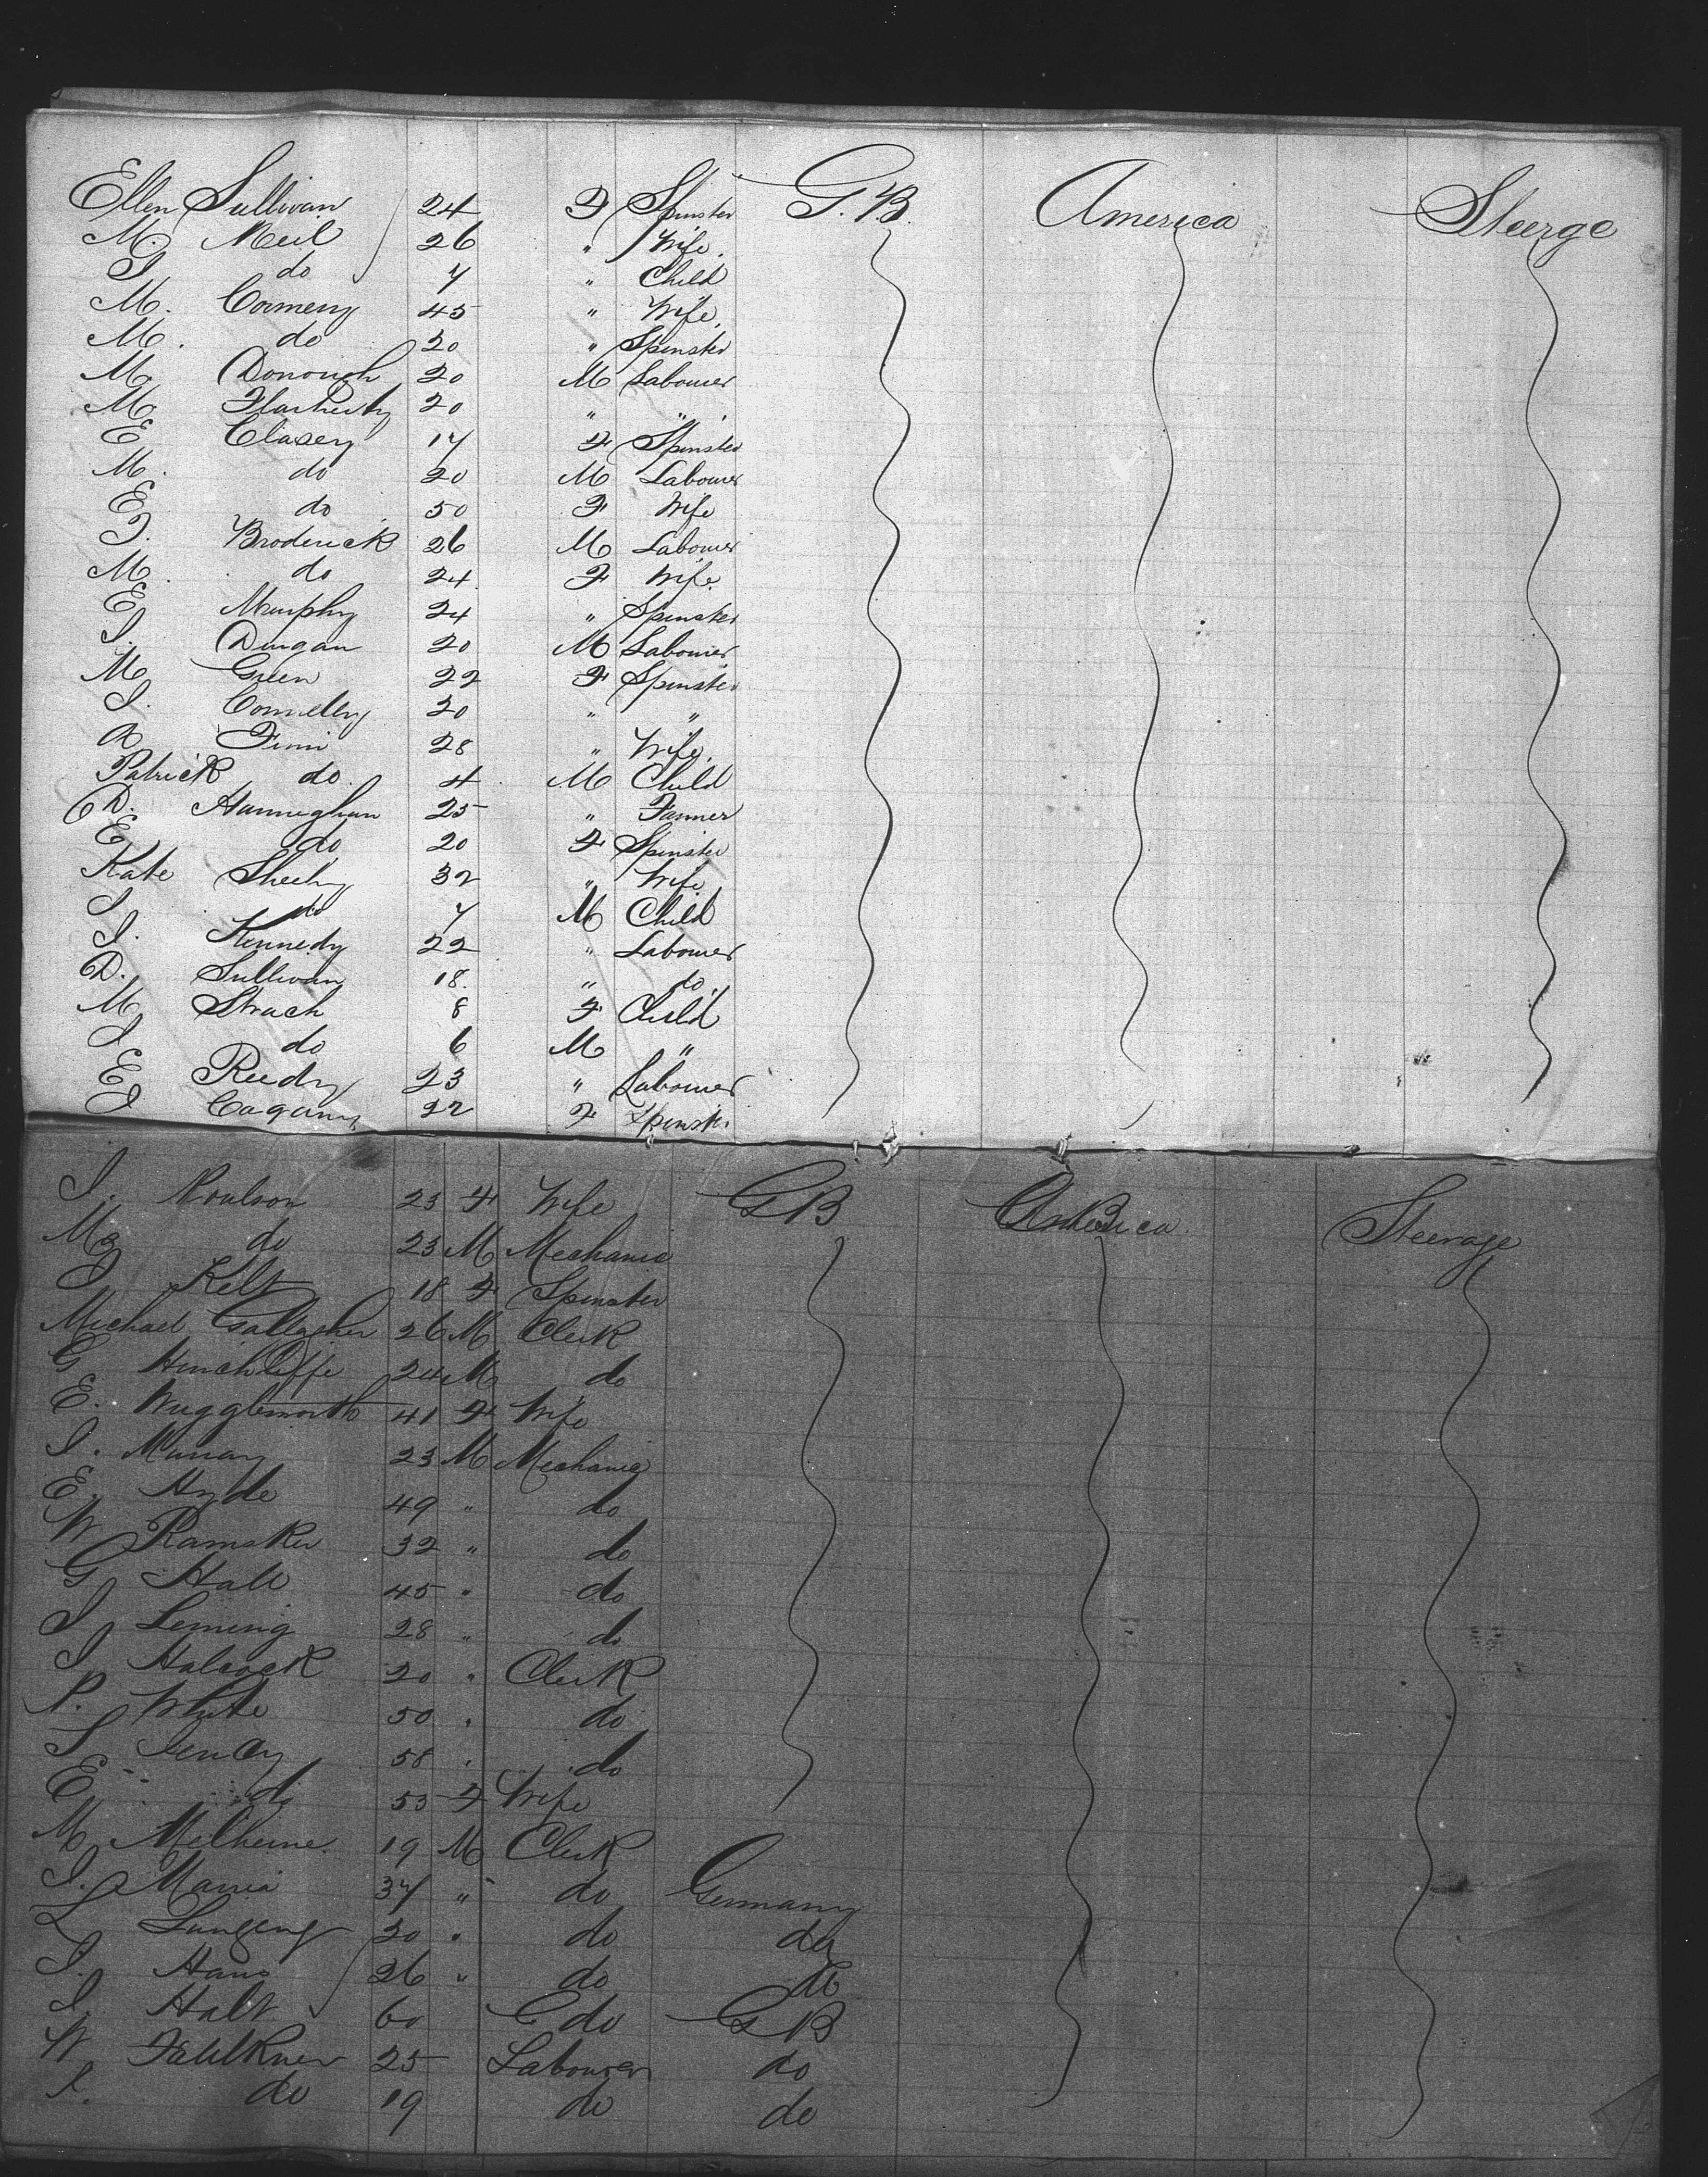 Ellen Sullivan 24 F Spinster G.B. America Steerge
M. Neil 26 " Wife
J do 7 " Child
M. Cormeny 45 " Wife
M. do 20 " Spinster
M. Donough 20 M Labourer
M. Flarherty 20 " "
E Clasey 17 F Spinster
M. do 20 M Labourer
E do 50 F Wife
J. Broderick 26 M Labourer
M. do 24 F Wife
E Murphy 24 " Spinster
J. Dungan 20 M Labourer
M. Green 22 F Spinster
J. Connelly 20 " "
A 28 " Wife
Patrick do 4 M Child
D. Hannighan 25 " Farmer
E do 20 F Spinster
Kate Sheehy 32 " Wife
J do 7 M Child
J. Kennedy 22 " Labourer
D. Sullivan 18. " do.
M Strach 8 F Child
J. do 6 M "
E Reedy 23 " Labourer
J 22 F Spinstr.
J. Poulson 23 F Wife GB America Steerage
M do 23 M Mechanic
J Kelt 18 F Spinster
Michael Gallagher 26 M Clerk
G Hinchliffe 24 M do
E. Wigglesworth 41 F Wife
J. Murray 23 M Mechanic
E. Hyde 49 " do
W Ramsker 32 " do
G Hall 45 " do
J Leming 28 " do
J Halcock 20 " Clerk
P. White 50 " do
S 58 " do
E do 53 F Wife
M 19 M Clerk
J. Maria 37 " do Germany
L 20 " do do
J. Hans 26 " do do
J. Halt 60 do GB
W Faulkner 25 Labourer do
J. do 19 do do